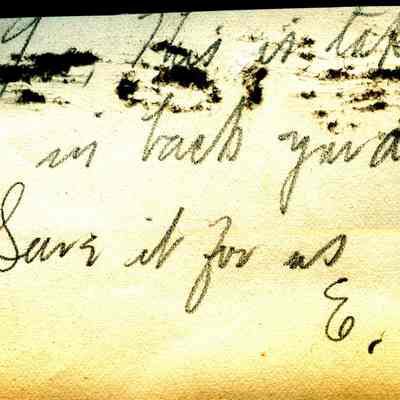 This is tak
in back yard
Save it for us
E.